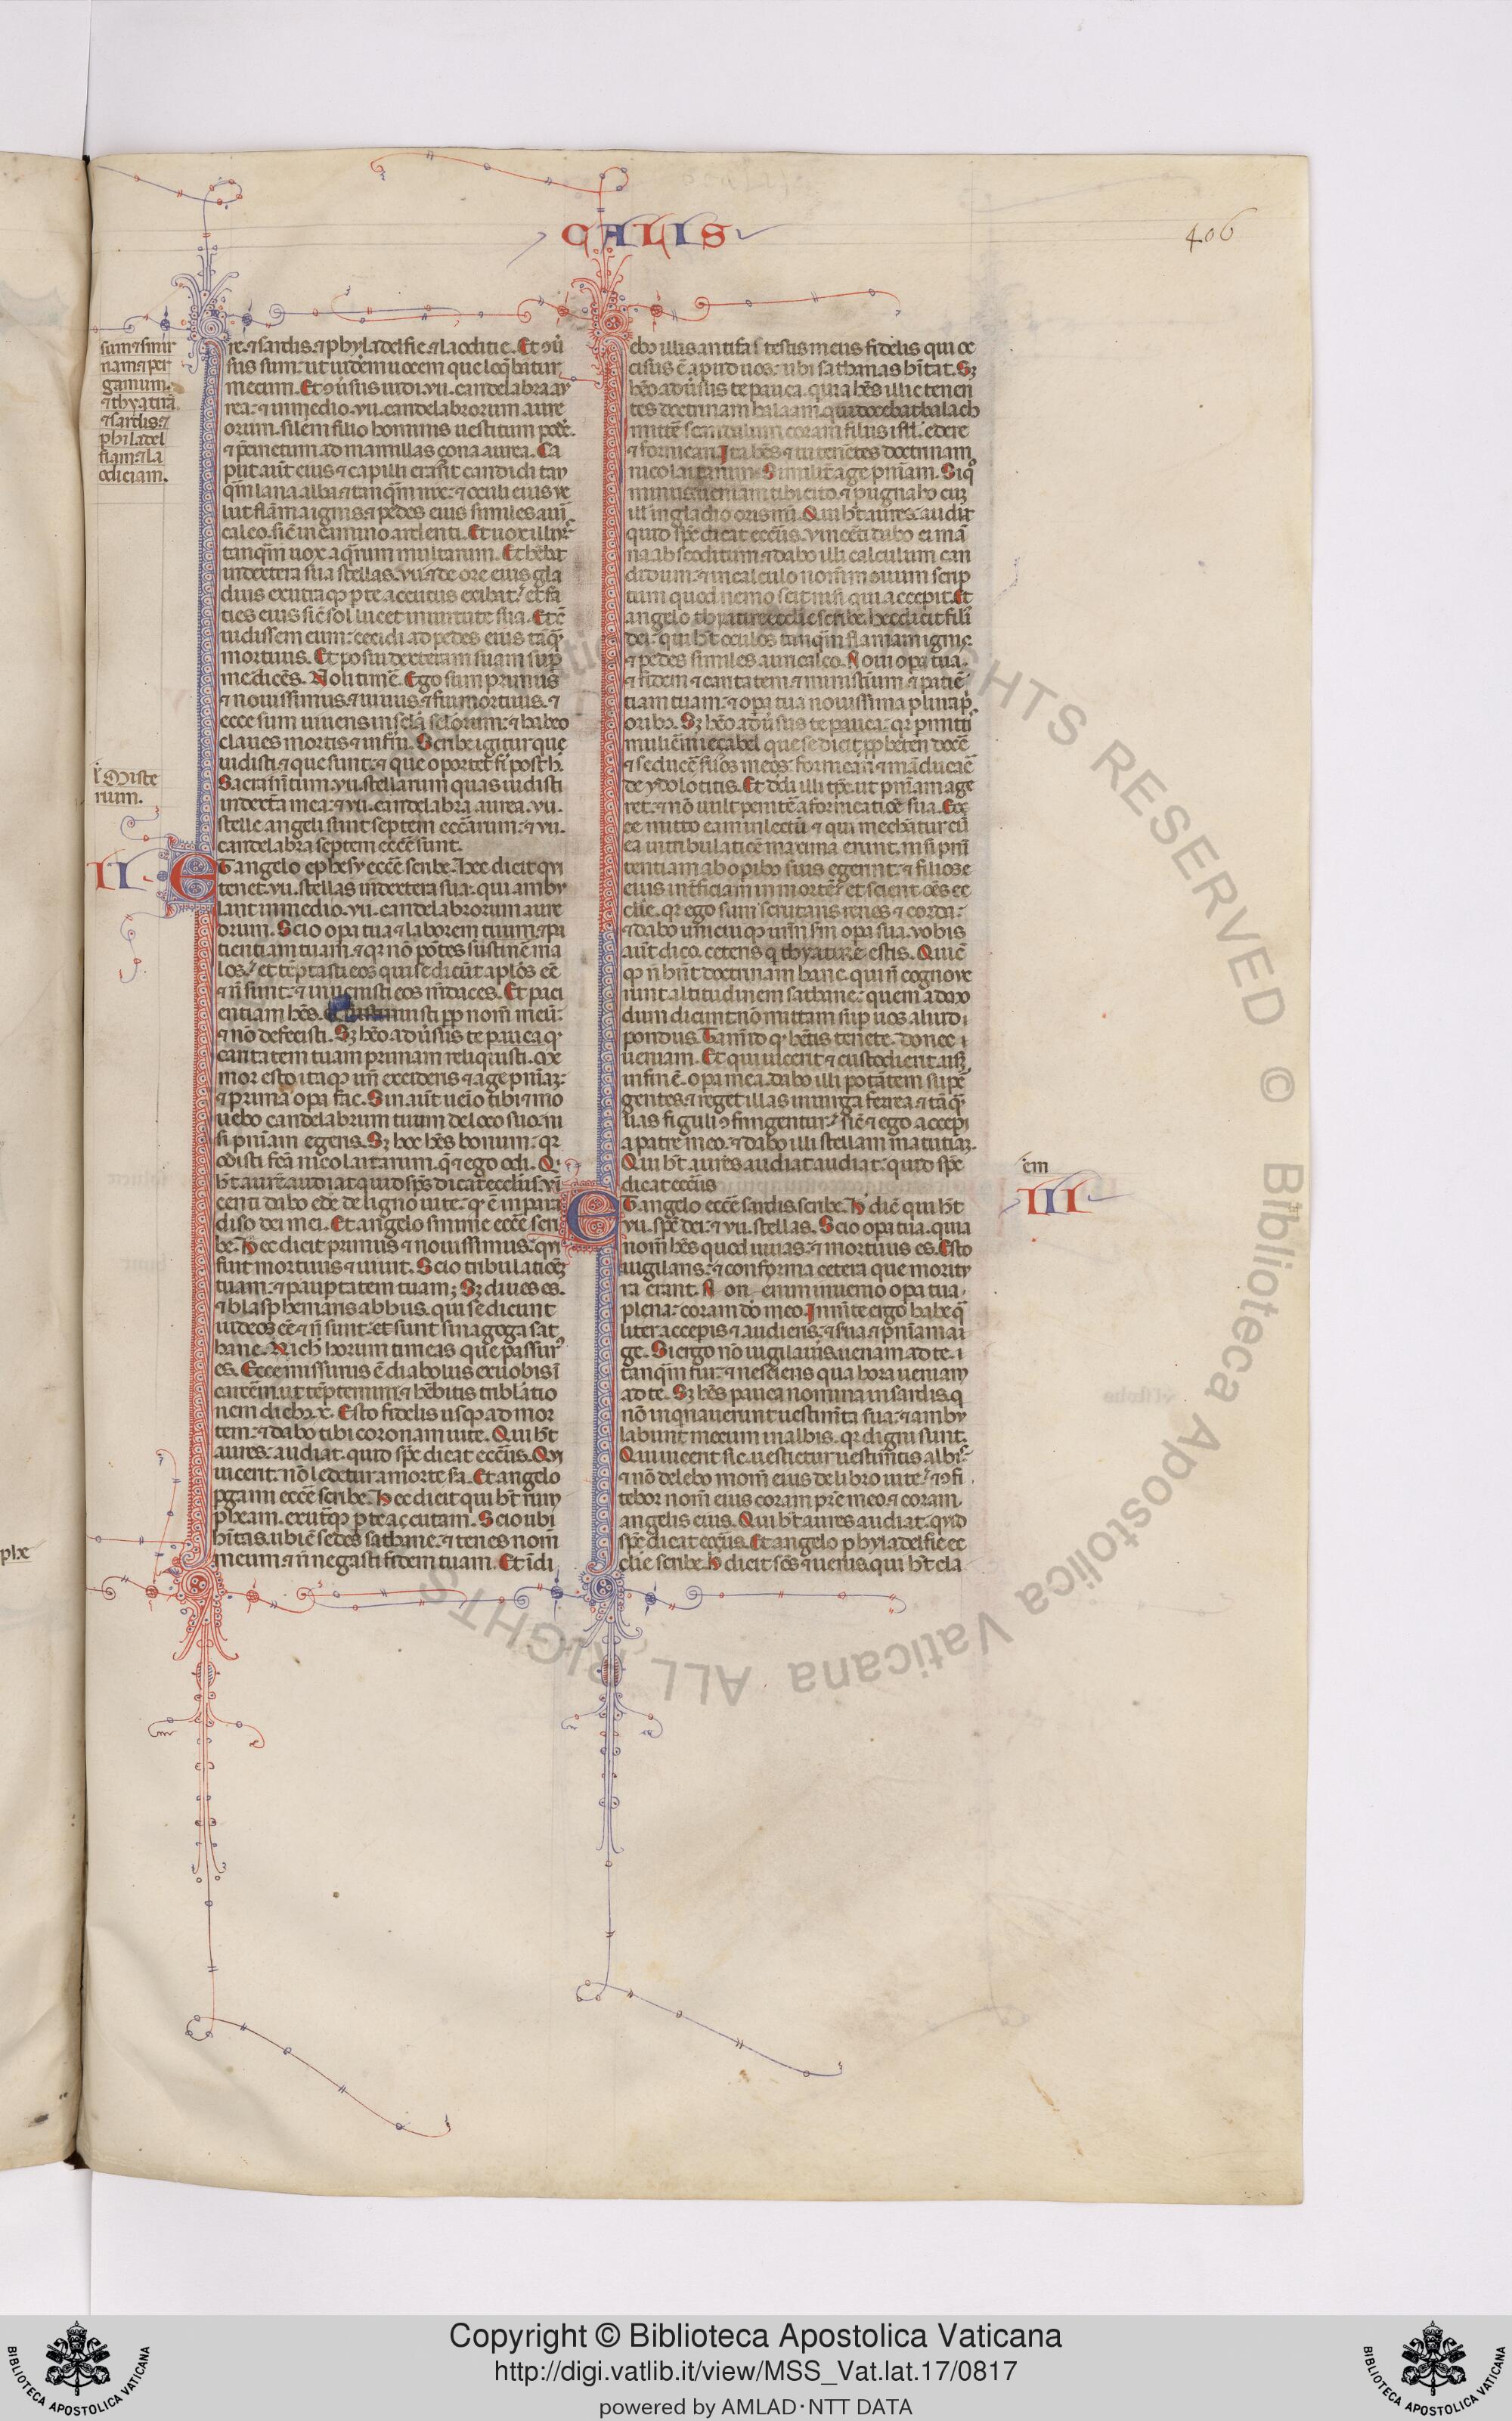 CALIS
406
sum & smir
nam & per
gamum.
& thyatirā
& sardis. &
philadel
fiam. & la
odiciam.
re. & sardis. & phyladelfie. & laoditie. Et ɔ̄u̇
sus sum: ut uidem̄ uocem que loq̄bātur
mecum. Et ɔu̇sus uidi .vii. candelabra au
rea: & in medio .vii. candelabrorum aure
orum. silem̄ filio hominis uestitum poder̄.
& p̄cinctum ad mamillas çona aurea. Ca
put aūt eius & capilli erant candidi tan
q̄m lana alba. & tanq̄m nix: & oculi eius ue
lut flāma ignis. & pedes eius similes auri
calco. sic̄ in camino ardenti. Et uox illiꝰ
tanq̄m uox aq̄rum multarum. Et hēbat
in dextera sua stellas .vii. & de ore eius gla
dius ex utraqꝫ p̄te accutus exibat: et fa
cies eius sic̄ sol lucet in uirtute sua. Et c̄
uidissem eum: cecidi ad pedes eius tāq̄
mortuus. Et posuit dexteram suam suꝑ
me dicēs. Noli timē. Ego sum primus
& nouissimus. & uiuus. & fui mortuus. &
ecce sum uiuens in scl̄a sclorum: & habeo
claues mortis & infīni. Scribe igitur que
uidisti. & que sunt. & que oportet fi post h̄.
Sacram̄tum .vii. stellarum quas uidisti
in dext̄a mea: & vii. candelabra aurea. vii.
stelle angeli sunt septem ecc̄arum: & vii.
candelabra septem ecc̄e sunt.
l' Miste
rium.
II
ET angelo ephesy ecc̄e scribe. Hec dicit qui
tenet .vii. stellas in dextera sua. qui ambu
lant in medio .vii. candelabrorum aure
orum. Scio opa tua & laborem tuum. & pa
tientiam tuam. & qr nō potes sustinē ma
los: et teptasti eos qui se dicūt aplos eē
& n̄ sunt: & inuenisti eos m̄daces. Et paci
entiam hēs. & sustinuisti pp nom̄ meū:
& nō defecisti. Sꝫ hēo adu̇sus te pauca qꝫ
caritatem tuam primam reliqisti. Me
mor esto itaqꝫ un̄ excideris & age pn̄iaꝫ:
& prima opa fac. Sin aūt uēio tibi & mo
uebo candelabrum tuum de loco suo. ni
si pn̄iam egeris. Sꝫ hoc hēs bonum: qr
odisti fc̄a nicolaitarum. q̄ & ego odi. Q
h̄t aurē audiat quid sp̄s dicat ecclīis. vī
centi dabo edē de ligno uite. qꝫ ē in para
diso dei mei. Et angelo smirne ecc̄e scri
be. Hec dicit primus & nouissimus: qui
fuit mortuus & uiuit. Scio tribulationeꝫ
tuam. & pauptatem tuam; Sꝫ diues es.
& blasphemaris ab hiis. qui se dicunt
iudeos eē & n̄ sunt: et sunt sinagoga sat
hane. Nich horum timeas que passurꝰ
es. Ecce missurus ē diabolus ex uobis ī
carcem̄. ut tēptemini. & hēbitis tribl̄atio
nem dieb .x. Esto fidelis usqꝫ ad mor
tem: & dabo tibi coronam uite. Qui h̄t
aures. audiat. quid sp̄s dicat ecc̄iis. Qui
uicerit nō ledetur a morte s̄a. Et angelo
pgami ecc̄e scribe. Hec dicit qui h̄t rum
pheam. ex utqꝫ p̄te accutam. Scio ubi
hītas. ubi ē sedes sathane. & tenes nom̄
meum & n̄ negasti fidem tuam. Et ī di
ebꝫ illis antifas testis meus fidelis qui oc
cisus ē apud uos: ubi sathanas hītat. Sꝫ
hēo adu̇sus te pauca. quia hēs illic tenen
tes doctrinam balaam. qui docebat balach
mittē scandalum coram filiis isrl̄: edere
& fornicari. Ita hēs & tu tenētes doctrinam
nicolaitarum. Similit̄ age pn̄iam. Si qꝫ
minus ueniam tibi cito. & pugnabo cuꝫ
ill in gladio oris mi. Qui h̄t aures. audiat
quid sp̄s dicat ecc̄iis. vincēti dabo ei mā
na absconditum & dabo illi calculum can
didum: & in calculo nom̄ nouum scrip
tum quod nemo scit nisi qui accepit. Et
angelo thyatire ecclie scribe. hec dicit fili
dei: qui h̄t oculos tanq̄m flamam ignis.
& pedes similes auricalco. Noui opa tua.
& fidem & caritatem. & ministium. & patiē
tiam tuam: & opa tua nouissima plura p
oribꝫ. Sꝫ hēo adu̇sus te pauca: qr pmitti
mulierē ieçabel que se dicit ppheten docē
& seducē suos meos: fornicari & māducare
de ydolotitis. Et dedi illi tp̄s. ut pn̄iam age
ret: & nō uult penitē a fornicatioē sua. Ec
ce mitto eam in lectū & qui mechātur cū
ea in tribulatioē maxima erunt. nisi pn̄i
tentiam ab opibꝫ suis egerint: & filios
eius int̄ficiam in mortē: et scient oēs ec
clie. qr ego sum scrutans renes & corda:
& dabo unicuiqꝫ urm̄ sm̄ opa sua. vobis
aūt dico. ceteris q thyatire estis. Qui c̄
qꝫ n̄ hn̄t doctrinam hanc. qui n̄ cognoue
runt altitudinem sathane: quem admo
dum dicunt. nō mittam sup uos aliud
pondus. Tamn̄ id qꝫ hētis tenete. donec i
ueniam. Et qui uicerit & custodierit usqꝫ
in finē. opa mea. dabo illi potātem supē
gentes. & reget illas in uirga ferrea. & tāq̄
uas figuli ɔfringentur: sic̄ & ego accepi
a patre meo. & dabo illi stellam matutiaꝫ.
Qui h̄t aures audiat audiat: quid sp̄s
dicat ecc̄iis
em
III
ET angelo ecc̄e sardis scribe. H̄ dic̄ qui h̄t
vii. sp̄s dei: & vii. stellas. Scio opa tua. quia
nom̄ hēs quod uiuas: & mortuus es. Esto
uigilans: & conforma cetera que moritu
ra erant. Non enim inuenio opa tua
plena: coram dō meo. In mte ergo habe q̄
liter accepis & audieris: & sua & pn̄iam a
ge. Si ergo nō uigilauis. ueniam ad te. i
tanq̄m fur: & nescieris qua hora ueniam
ad te. Sꝫ hēs pauca nomina in sardis. q
nō inqnauerunt uestimta sua: & ambu
labunt mecum in albis. qr digni sunt.
Qui uicerit sic. uestietur uestimtis albis:
& nō delebo nom̄ eius de libro uite: & ɔfi
tebor nom̄ eius coram pr̄e meo. & coram
angelis eius. Qui h̄t aures audiat. quid
sp̄s dicat ecc̄iis. Et angelo phyladelfie ec
clie scribe. h̄ dicit scs̄ & uerus. qui h̄t cla
phe
Copyright © Biblioteca Apostolica Vaticana
http://digi.vatlib.it/view/MSS_Vat.lat.17/0817
powered by AMLAD·NTT DATA
BIBLIOTECA APOSTOLICA VATICANA
BIBLIOTECA APOSTOLICA VATICANA
ALL RIGHTS RESERVED © Biblioteca Apostolica Vaticana